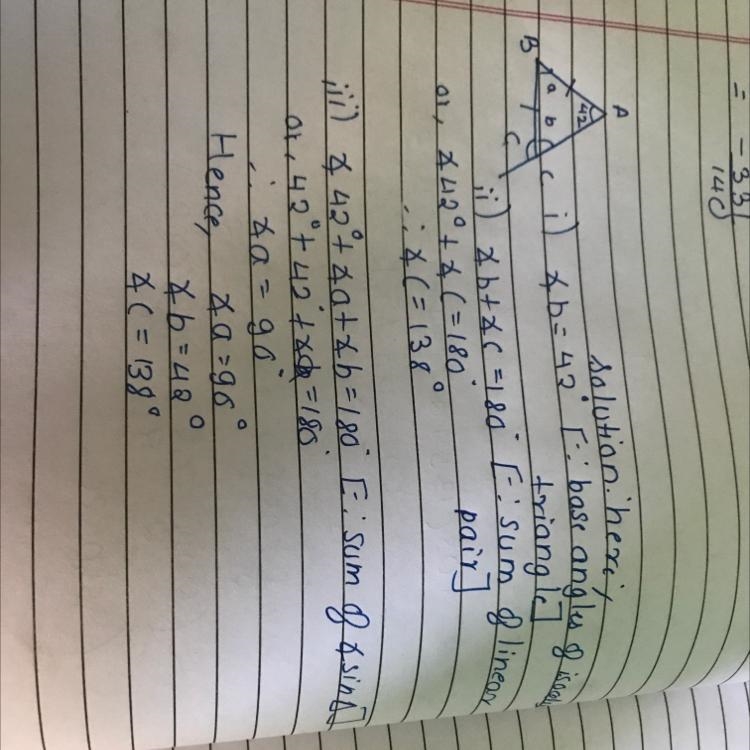 = - 33
140
A
42
B
a
b
c
C
Solution: here,
i) ∡b = 42° [∵ base angles of isos
triangle]
ii) ∡b + ∡c = 180° [∵ sum of linear
pair]
or, ∡42° + ∡c = 180°
∴ ∡c = 138°
iii) ∡42° + ∡a + ∡b = 180° [∵ sum of ∡s in Δ]
or, 42° + 42° + ∡a = 180°
∴ ∡a = 96°
Hence, ∡a = 96°
∡b = 42°
∡c = 138°